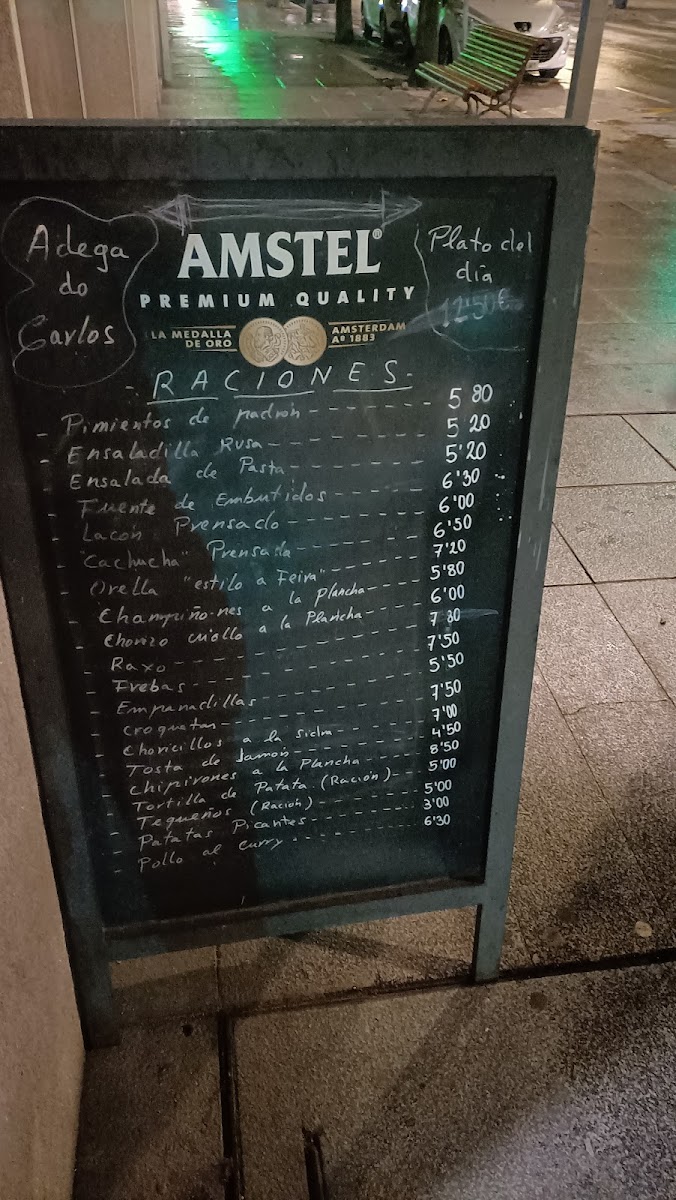 Adega
do
Carlos
AMSTEL®
PREMIUM QUALITY
LA MEDALLA
DE ORO
AMSTERDAM
Aº 1883
Plato del
día
12'50€
- RACIONES -
- Pimientos de padrón - - - - 5'80
- Ensaladilla Rusa - - - - 5'20
- Ensalada de Pasta - - - - 5'20
- Fuente de Embutidos - - - - 6'30
- Lacón Prensado - - - - 6'00
- "Cachucha" Prensada - - - - 6'50
- Orella "estilo a Feira" - - - - 7'20
- Champiño-nes a la plancha - - - - 5'80
- Chorizo criollo a la Plancha - - - - 6'00
- Raxo - - - - 7'80
- Frebas - - - - 7'50
- Empanadillas - - - - 5'50
- Croquetas - - - - 7'50
- Choricillos a la sidra - - - - 7'00
- Tosta de Jamón - - - - 4'50
- Chipirones a la Plancha - - - - 8'50
- Tortilla de Patata (Ración) - - 5'00
- Tequeños (Ración) - - - - 5'00
- Patatas Picantes - - - - 3'00
- Pollo al curry - - - - 6'30